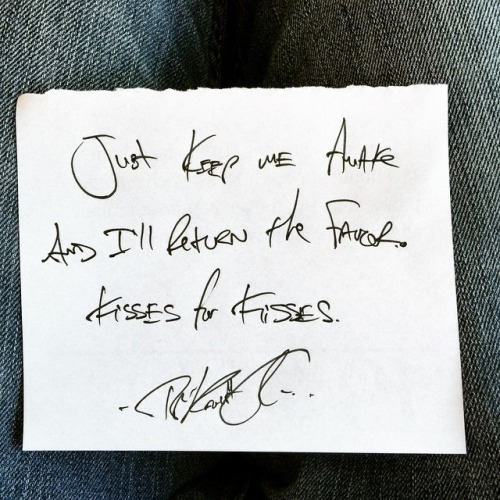 Just Keep me Awake
And I'll Return the Favor.
Kisses for Kisses.